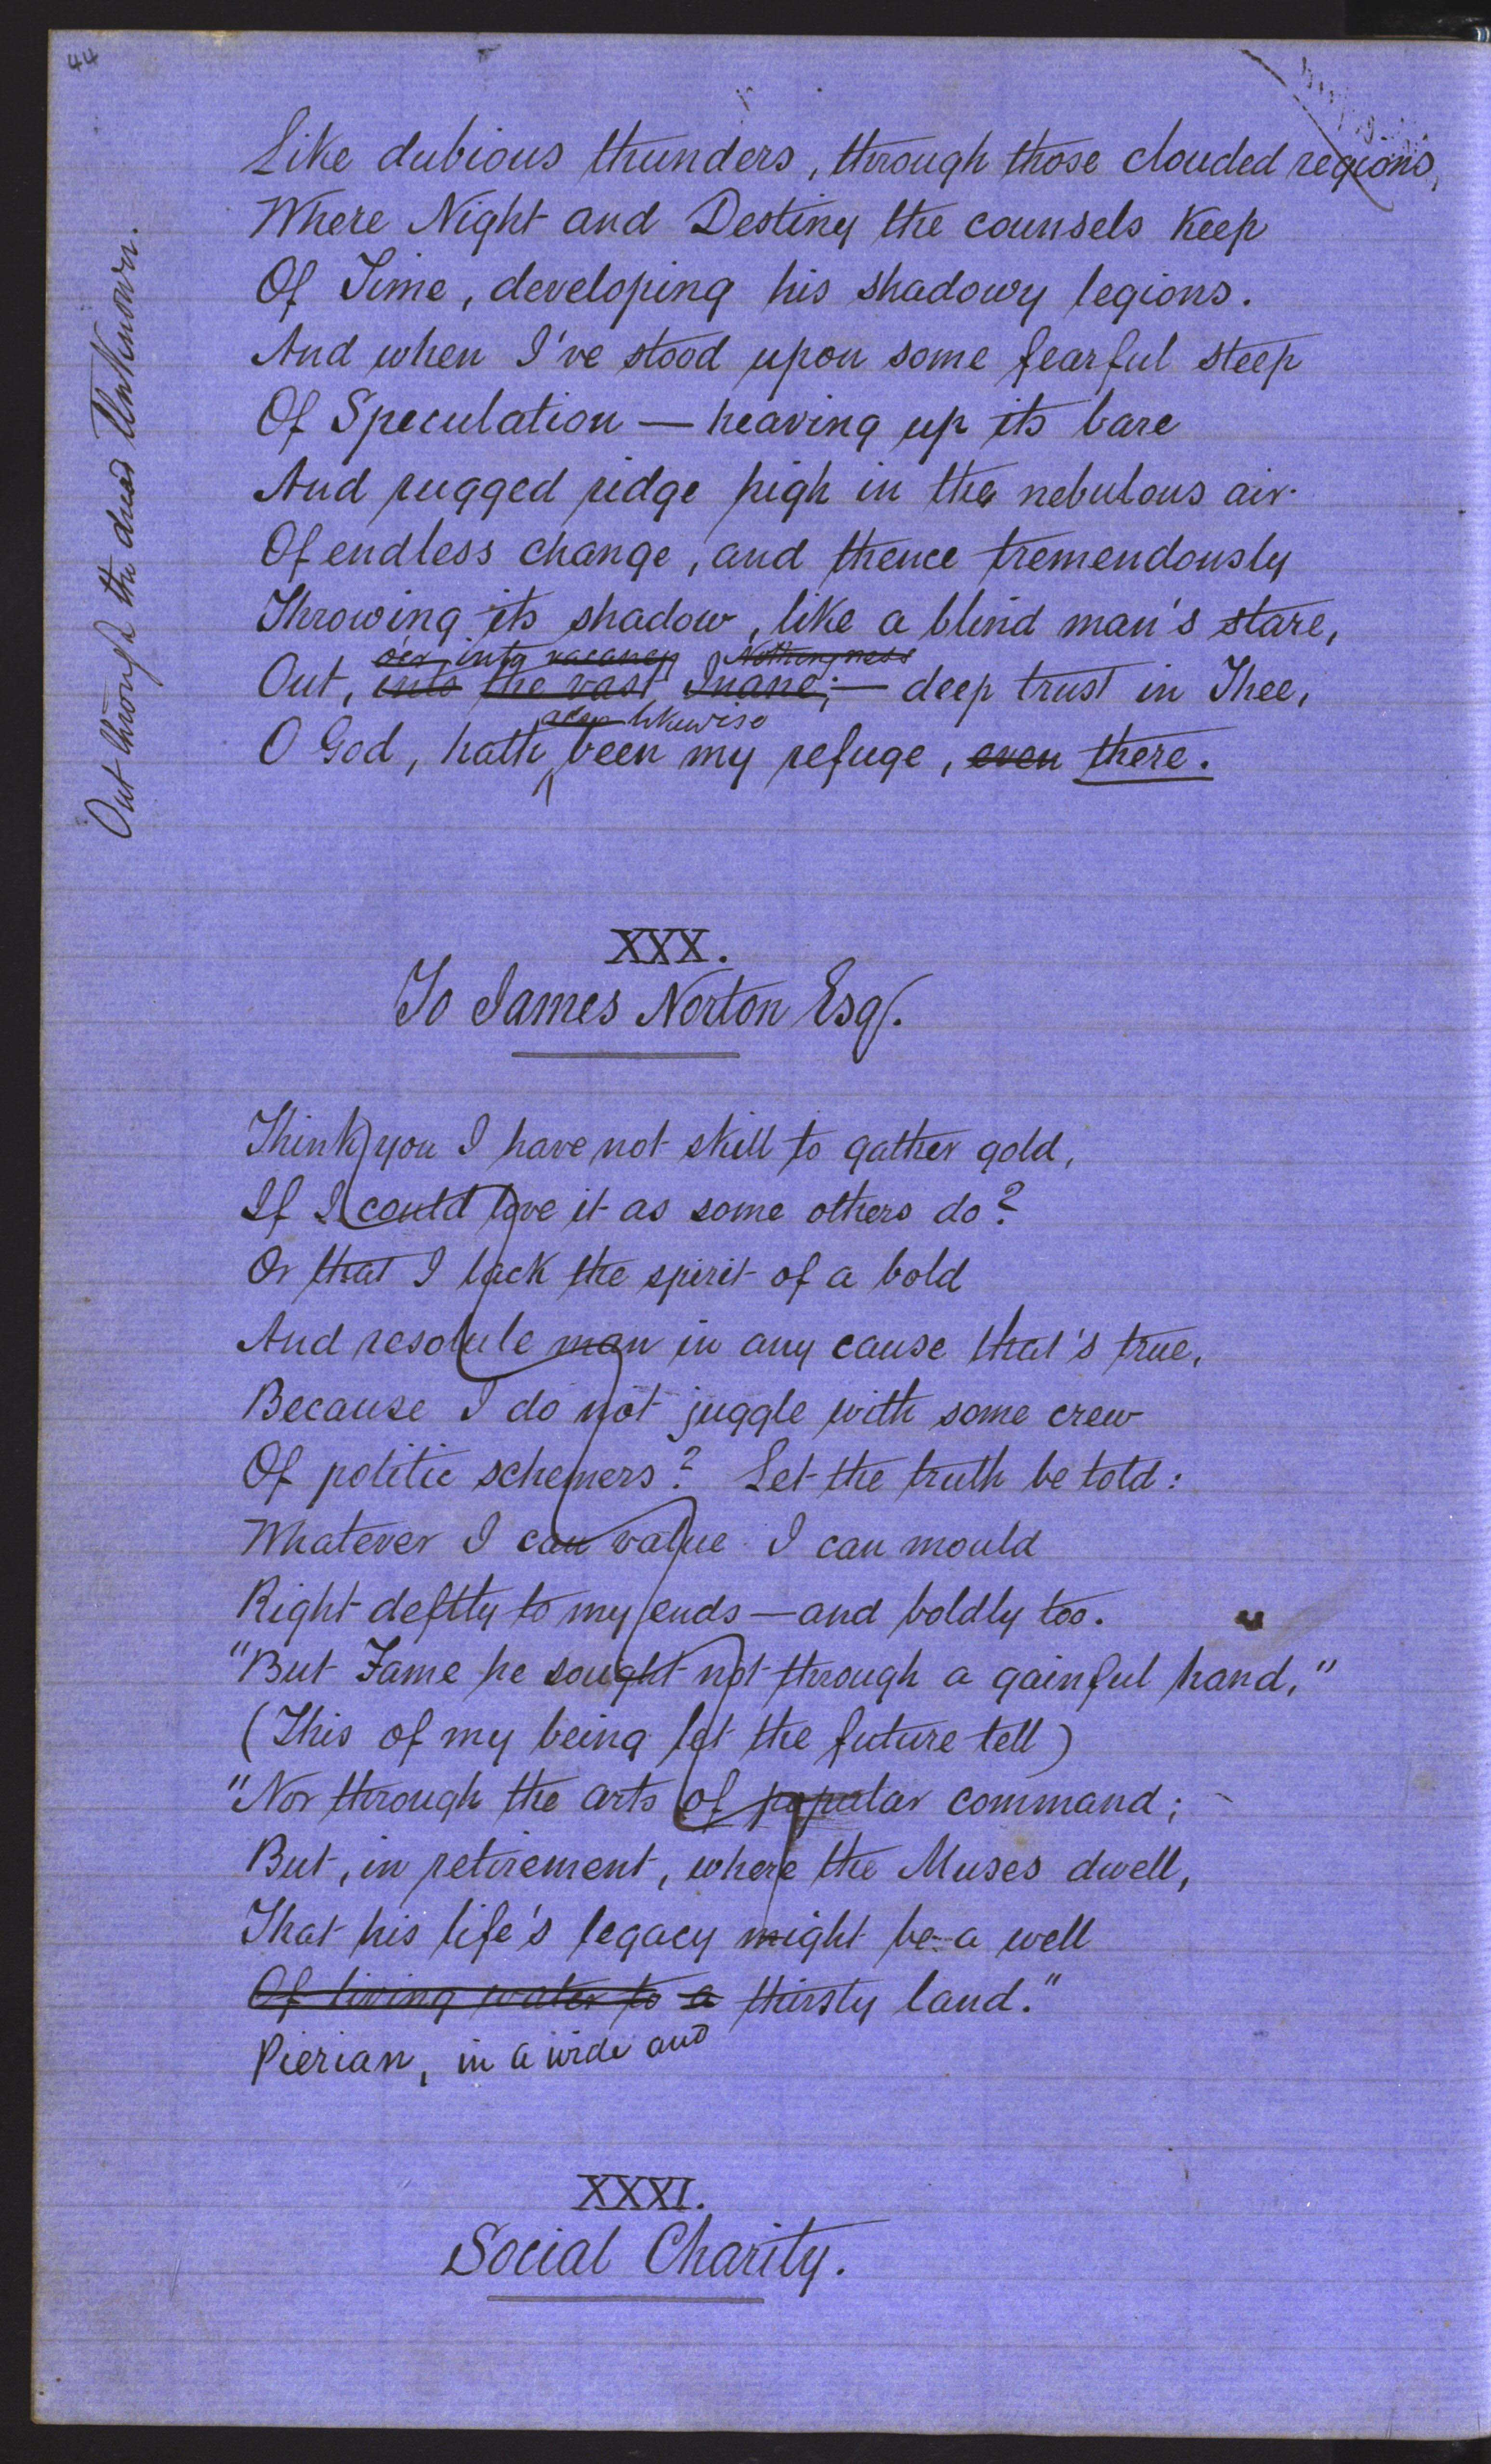 44
Like dubious thunders, through those clouded regions,
Where Night and Destiny the counsels keep
Of Time, developing his shadowy legions.
And when I've stood upon some fearful steep
Of Speculation — heaving up its bare
And rugged ridge high in the nebulous air
Of endless change, and thence tremendously
Throwing its shadow, like a blind man's stare,
o'er into vacancy Nothingness
Out, into the vast Inane; — deep trust in Thee,
likewise
O God, hath been my refuge, even there.
Out through the dread Unknown.
XXX.
To James Norton Esq.
Think you I have not skill to gather gold,
If I could love it as some others do?
Or that I lack the spirit of a bold
And resolute man in any cause that's true,
Because I do not juggle with some crew
Of politic schemers? Let the truth be told:
Whatever I can value I can mould
Right deftly to my ends — and boldly too.
"But Fame he sought not through a gainful hand,"
(This of my being let the future tell)
"Nor through the arts of popular command;
But, in retirement, where the Muses dwell,
That his life's legacy might be a well
Of living water to a thirsty land."
Pierian, in a wide and
XXXI.
Social Charity.